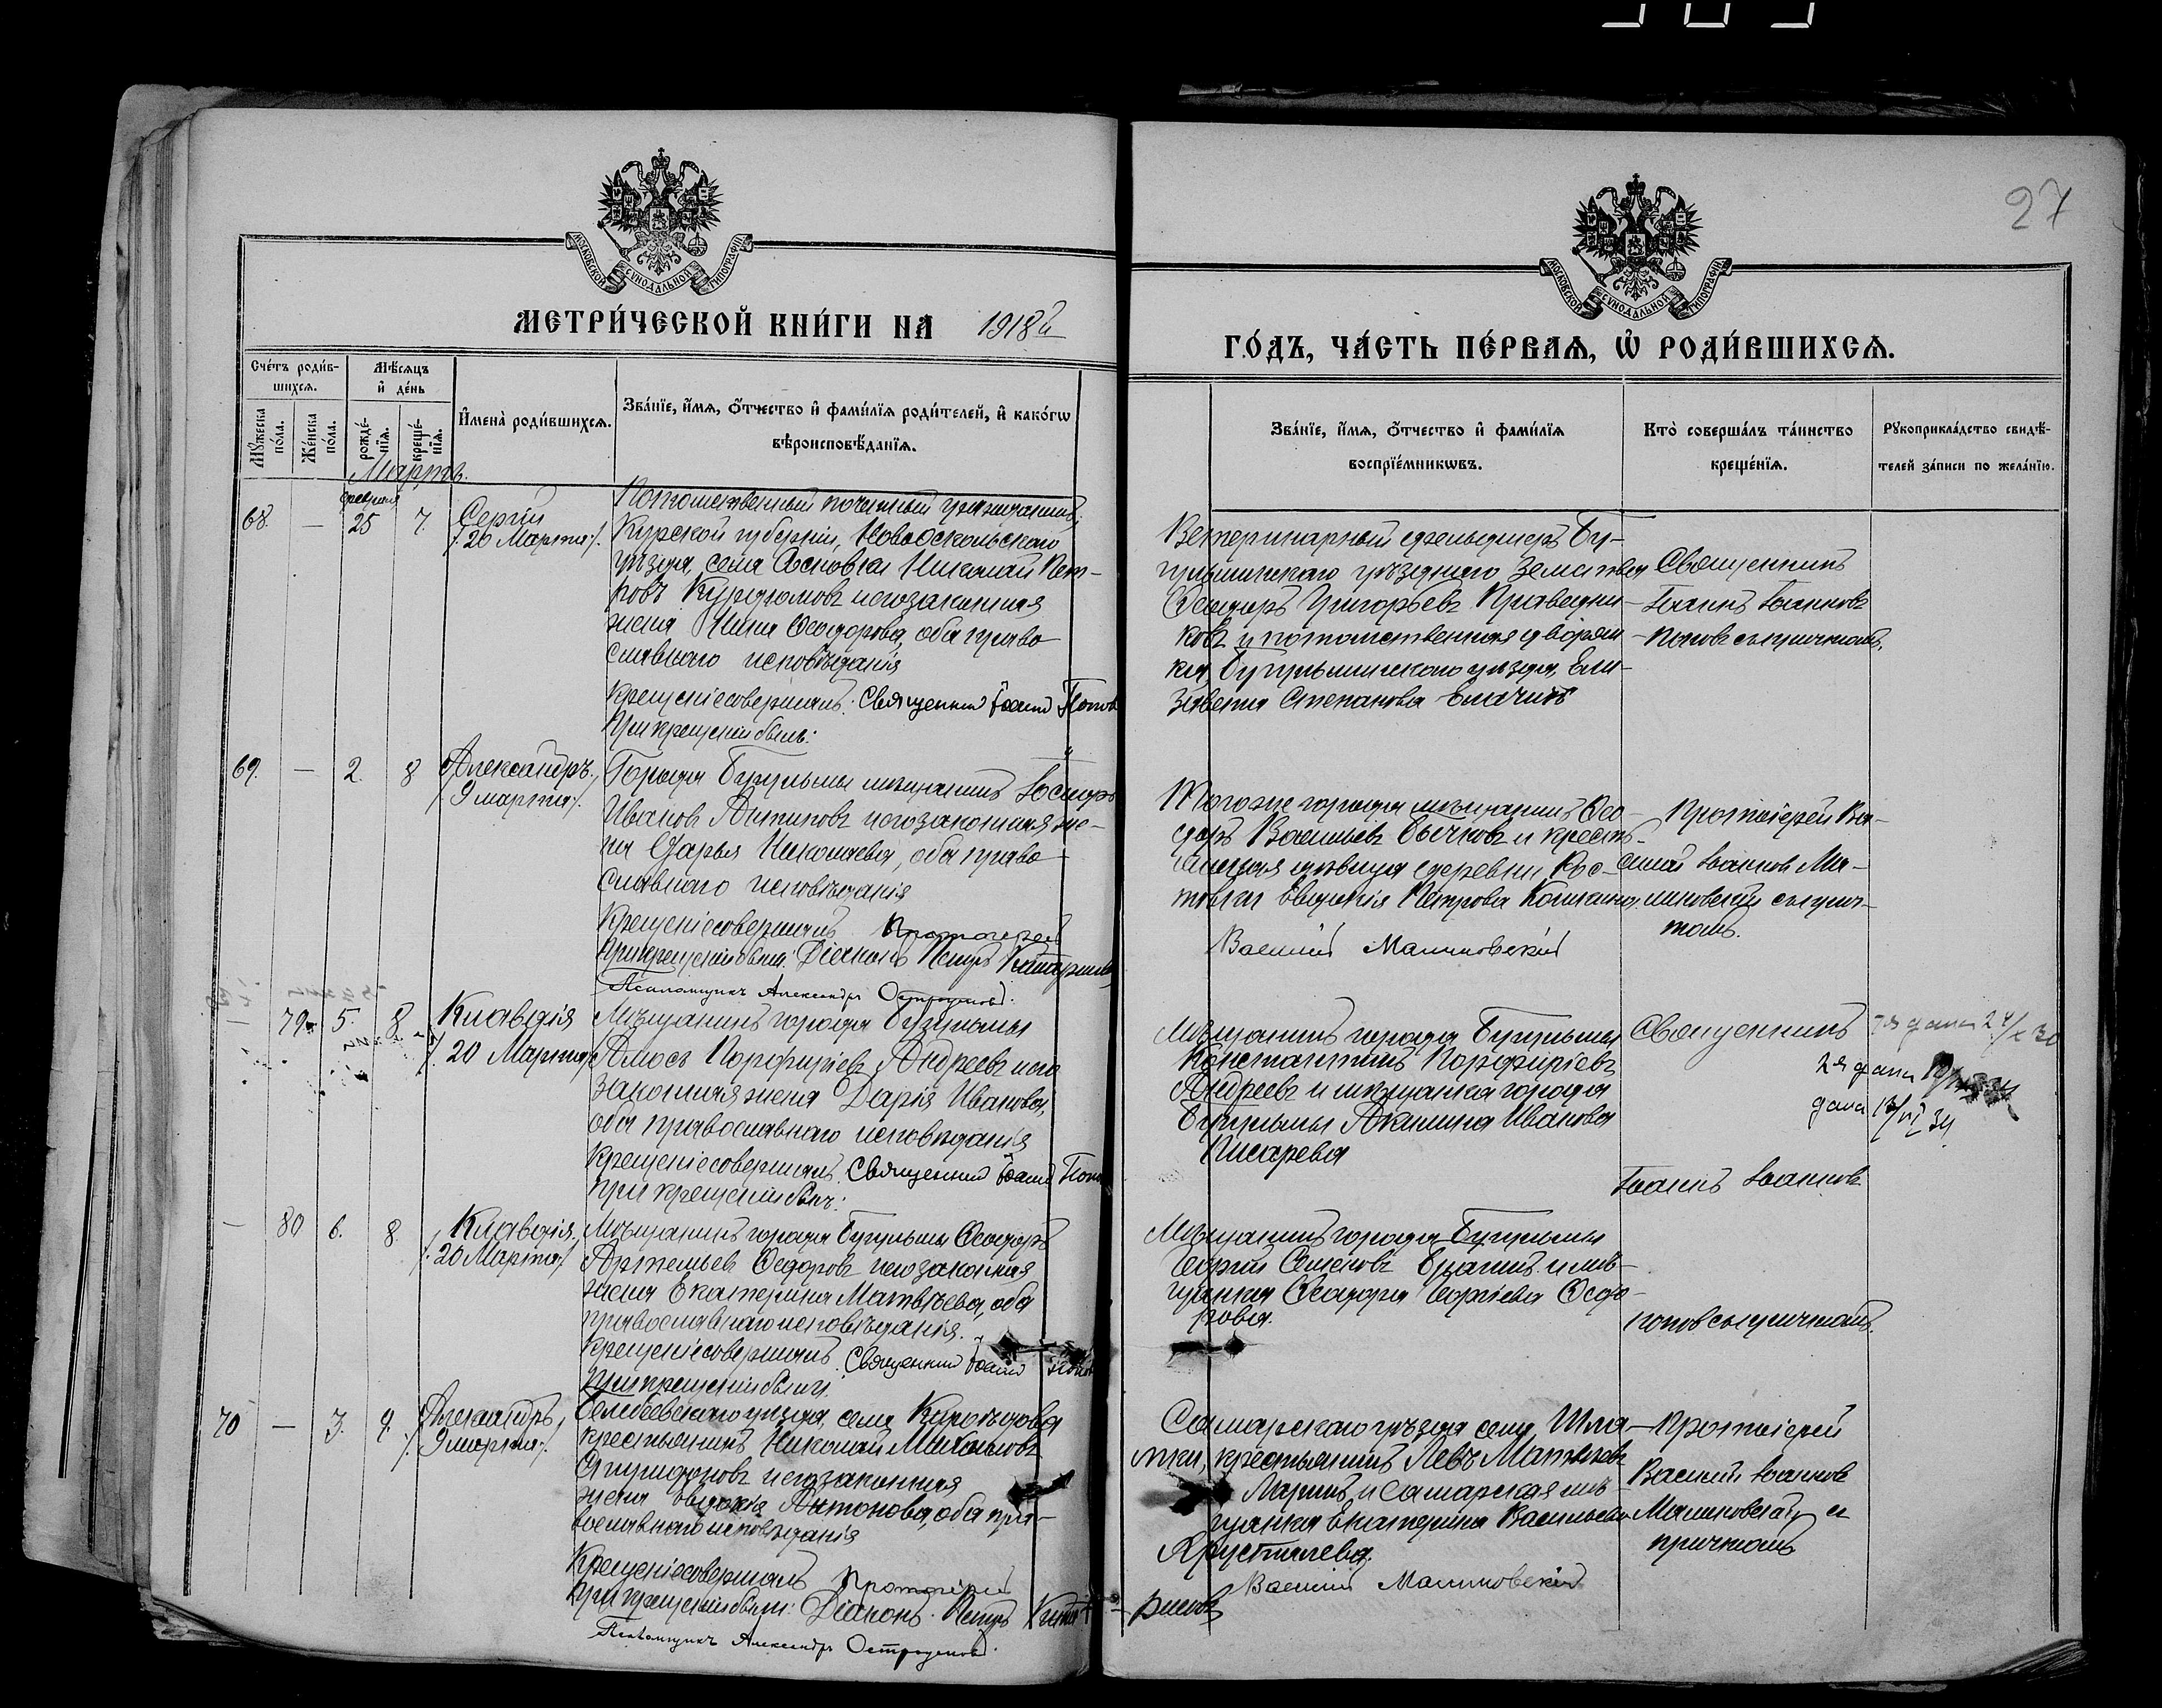 27
МОСКОВСКОЙ СѴНОДАЛЬНОЙ ТИПОГРАФІИ
МОСКОВСКОЙ СѴНОДАЛЬНОЙ ТИПОГРАФІИ
МЕТРИ́ЧЕСКОЙ КНИ́ГИ НА 1918й
ГО́ДЪ, ЧА́СТЬ ПЕ́РВАѦ, Ѡ҆ РОДИ́ВШИХСѦ.
Сче́тъ роди́в-
шихсѧ.
Мѣ́сѧцъ
и҆ де́нь
Мꙋ́жеска по́ла.
Же́нска по́ла.
рожде́-
нїѧ.
креще́-
нїѧ.
И҆мена̀ роди́вшихсѧ.
Зва́нїе, и҆́мѧ, ѻ҆́тчество и҆ фами́лїѧ роди́телей, и҆ како́гѡ
вѣроисповѣ́данїѧ.
Зва́нїе, и҆́мѧ, ѻ҆́тчество и҆ фами́лїѧ
воспрїе́мникѡвъ.
Кто̀ соверша́лъ та́инство
креще́нїѧ.
Рꙋкоприкла́дство свидѣ́-
телей за́писи по жела́нїю.
Мартъ.
февраля
68. — 25 7. Сергій
/. 20 Марта /.
Потомственный почетный гражданинъ,
Курской губерніи, Новооскольскаго
уѣзда, села Осиновки Николай Пет-
ровъ Курдюмовъ и его законная
жена Нина Ѳеодорова, оба право-
славнаго исповѣданія
Крещеніе совершалъ: Священникъ Іоаннъ Попов
При крещеніи былъ:
Ветеринарный фельдшеръ Бу-
гульминскаго уѣзднаго Земства
Ѳеодоръ Григорьевъ Праведни-
ковъ и потомственная дворян-
ка, Бугульминскаго уѣзда, Ели-
завета Степанова Елачичъ
Священникъ
Іоаннъ Іоанновъ
Поповъ съ причтомъ.
69. — 2. 8 Александръ.
/. 9 марта /.
Города Бугульмы мѣщанинъ Іосифъ
Ивановъ Антиповъ и его законная же-
на Дарья Николаева, оба право-
славнаго исповѣданія
Крещеніе совершалъ Протоіерей
При крещеніи были: Діаконъ Петръ
Псаломщикъ Александръ Остроумовъ.
Того же города мѣщанинъ Ѳео-
доръ Васильевъ Бычковъ и кресть-
янская дѣвица деревни Рос-
товки Евдокія Петрова
Василій Малиновскій
Протоіерей Ва-
силій Іоанновъ Ма-
линовскій съ прич-
томъ.
— 79. 5. 8. Клавдія
/. 20 Марта /.
Мѣщанинъ города Бугульмы
Амосъ Порфиріевъ Андреевъ и его
законная жена Дарія Иванова,
оба православнаго исповѣданія
Крещеніе совершалъ. Священникъ Іоаннъ Попов
При крещеніи былъ:
Мѣщанинъ города Бугульмы
Константинъ Порфиріевъ
Андреевъ и мѣщанка города
Бугульмы Акилина Иванова
Писарева
Священникъ
Іоаннъ Іоанновъ
дана 24/X 30
2я дана
дана 13/VI 34
— 80 6. 8. Клавдія.
/. 20 Марта /
Мѣщанинъ города Бугульмы Ѳеодоръ
Артемьевъ Ѳедоровъ и его законная
жена Екатерина Матвѣева, оба
православнаго исповѣданія.
Крещеніе совершалъ Священникъ Іоаннъ Попов
При крещеніи былъ:
Мѣщанинъ города Бугульмы
Георгій Семеновъ и мѣ-
щанка Ѳеодора Георгіева Ѳедо-
рова.
Поповъ съ причтомъ.
70 — 3. 9. Александръ,
/. 9 марта /.
Белебеевскаго уѣзда, села Куроѣдова
крестьянинъ Николай Михайловъ
Спиридоновъ и его законная
жена Евдокія Антонова, оба пра-
вославнаго исповѣданія
Крещеніе совершалъ Протоіерей
При крещеніи были: Діаконъ Петръ
Псаломщикъ Александръ Остроумовъ.
Самарскаго уѣзда села Шла-
мки, крестьянинъ Левъ Матвѣевъ
и Самарская мѣ-
щанка Екатерина Васильева
Хрусталева.
Василій Малиновскій
Протоіерей
Василій Іоанновъ
Малиновскій съ
причтомъ